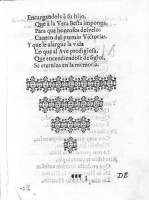 Encargandole à su hijo,
Que à la Vera Bella imponga,
Para que honrosos desvelos
Canten del premio victorias.
Y que le alargue la vida
Lo que al Ave prodigiosa,
Que encendiendose de siglos,
Se eterniza en la memoria.
DE